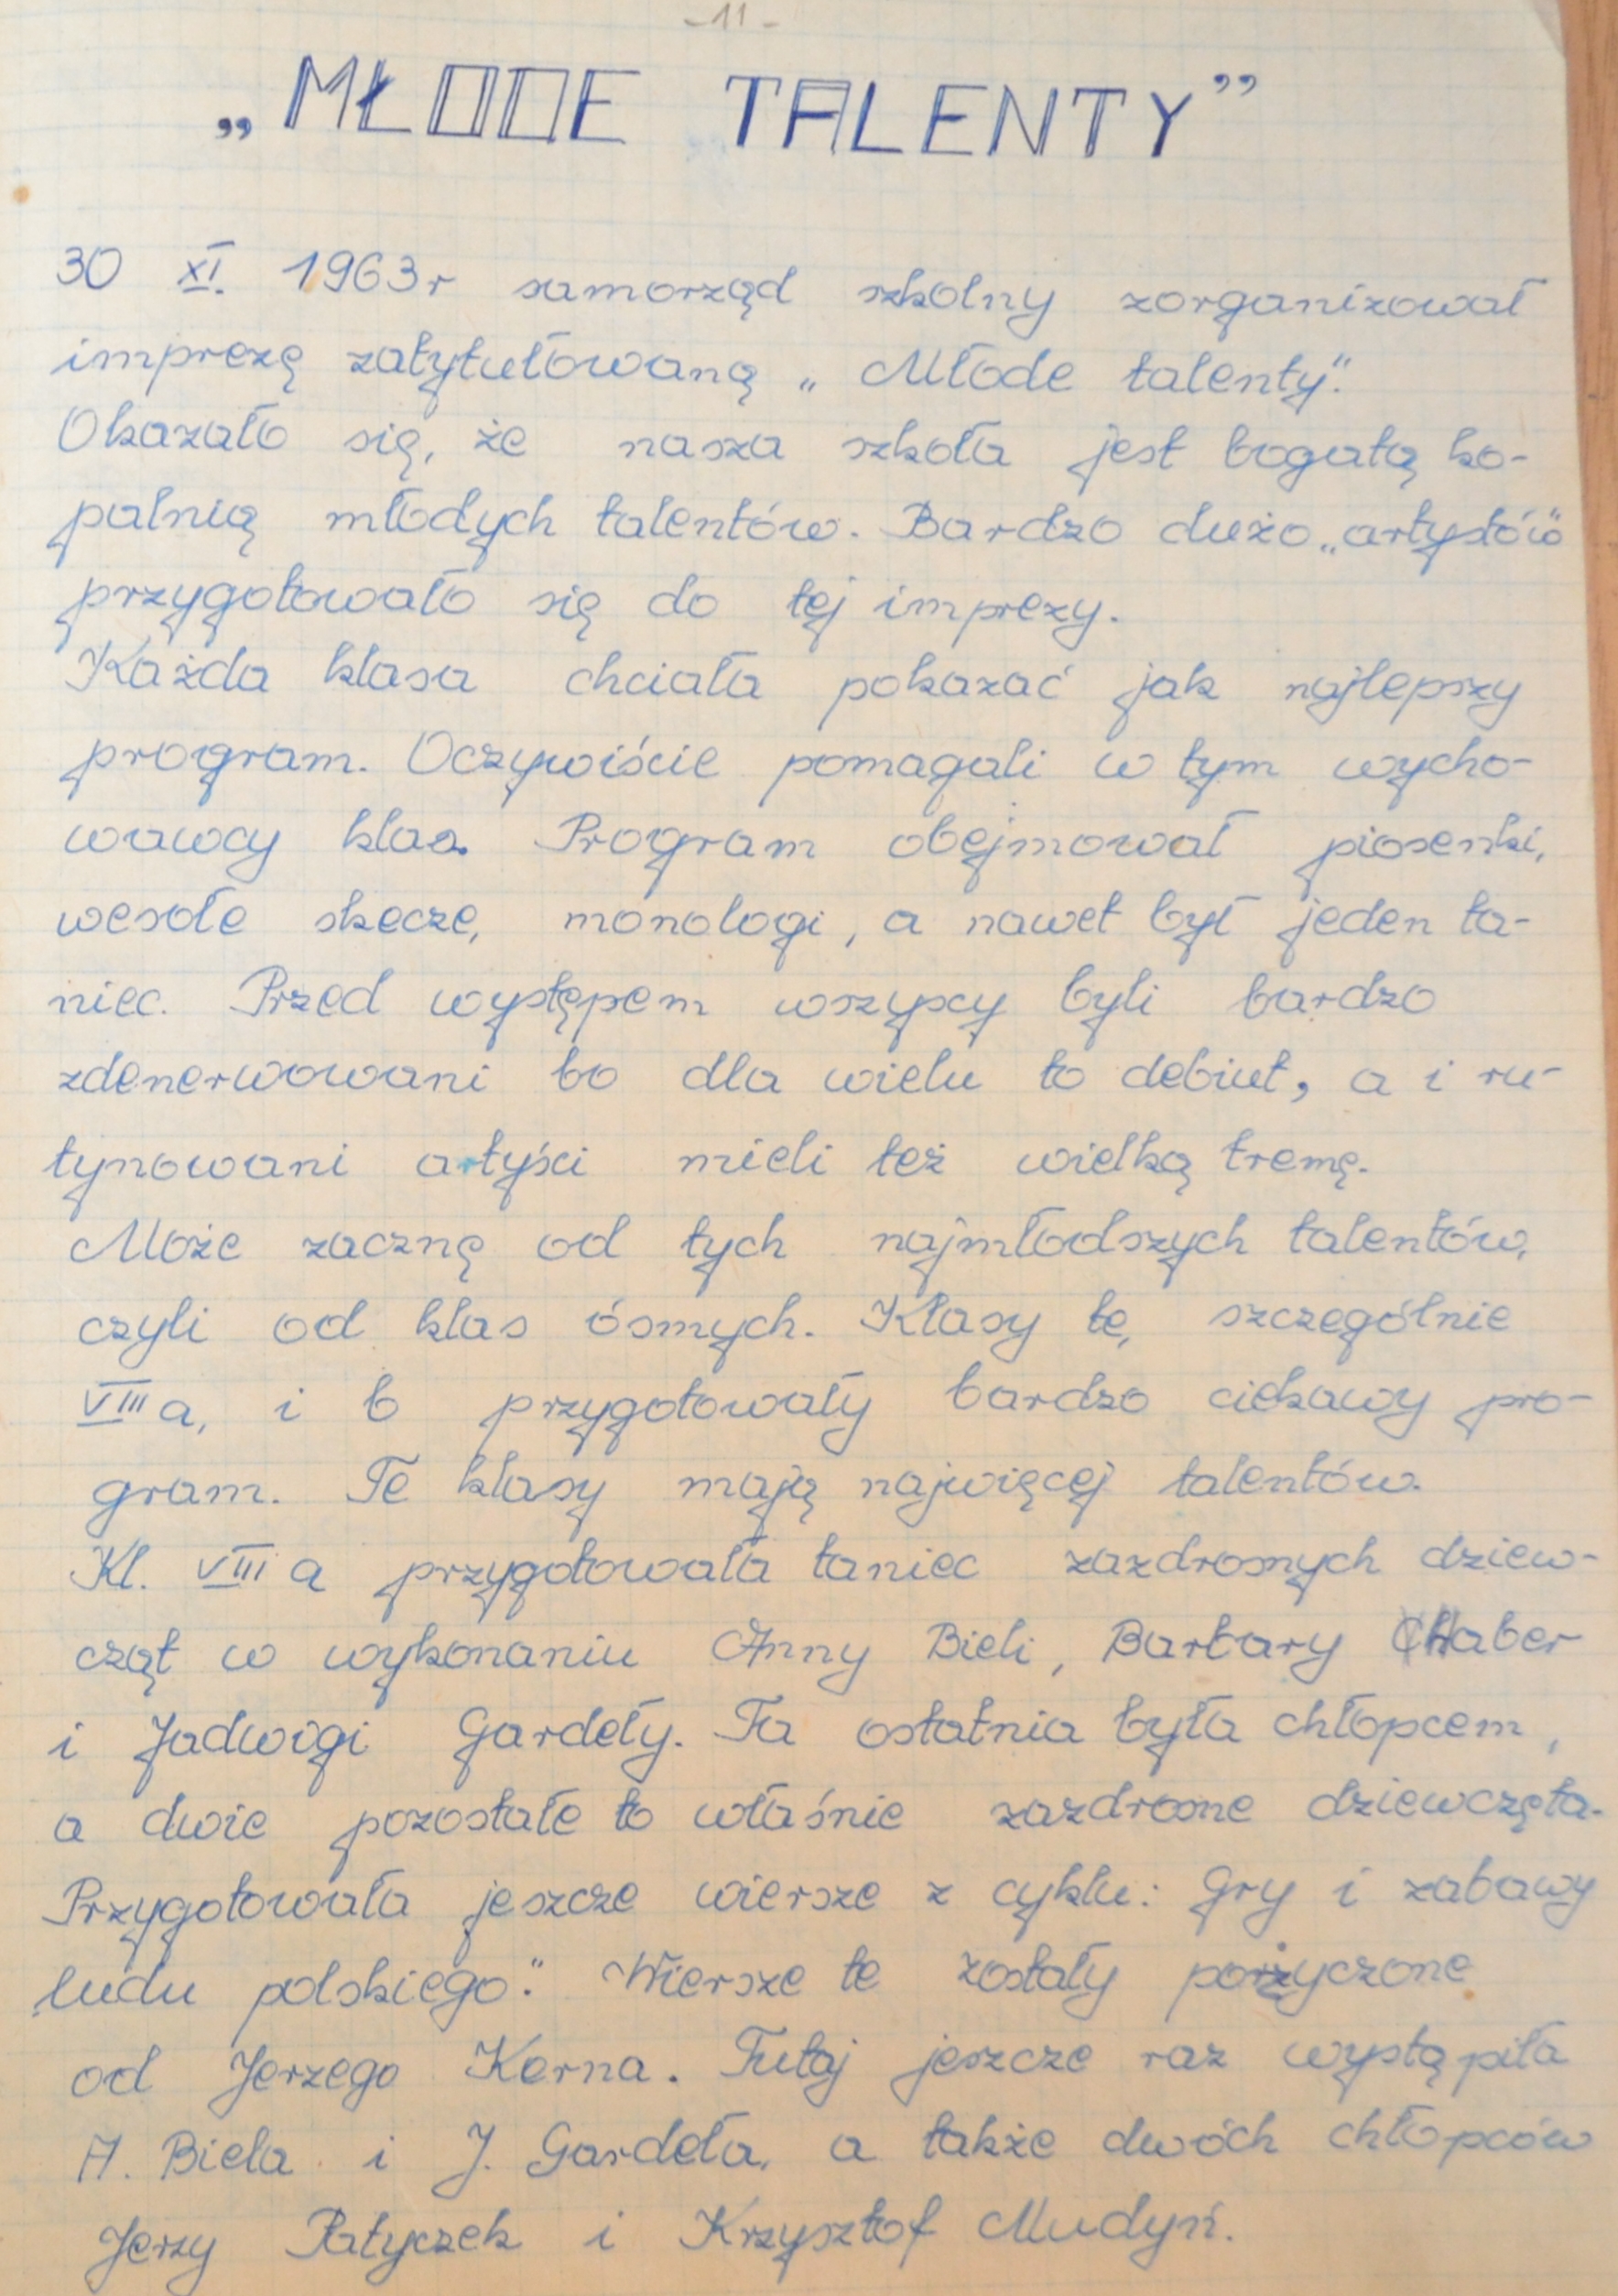 -11-
„MŁODE TALENTY”
30 XI. 1963r samorząd szkolny zorganizował
imprezę zatytułowaną „Młode talenty”.
Okazało się, że nasza szkoła jest bogatą ko-
palnią młodych talentów. Bardzo dużo „artystów”
przygotowało się do tej imprezy.
Każda klasa chciała pokazać jak najlepszy
program. Oczywiście pomagali w tym wycho-
wawcy klas. Program obejmował piosenki,
wesołe skecze, monologi, a nawet był jeden ta-
niec. Przed występem wszyscy byli bardzo
zdenerwowani bo dla wielu to debiut, a i ru-
tynowani artyści mieli też wielką tremę.
Może zacznę od tych najmłodszych talentów,
czyli od klas ósmych. Klasy te, szczególnie
VIII a, i b przygotowały bardzo ciekawy pro-
gram. Te klasy mają najwięcej talentów.
Kl. VIII a przygotowała taniec zazdrosnych dziew-
cząt w wykonaniu Anny Bieli, Barbary CHaber
i Jadwigi Gardeły. Ta ostatnia była chłopcem,
a dwie pozostałe to właśnie zazdrosne dziewczęta.
Przygotowała jeszcze wiersze z cyklu: Gry i zabawy
ludu polskiego." Wiersze te zostały pożyczone
od Jerzego Kerna. Tutaj jeszcze raz wystąpiła
A. Biela i J. Gardeła, a także dwóch chłopców
Jerzy Patyczek i Krzysztof Mudyń.